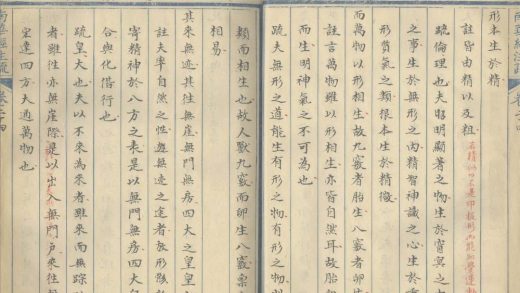 形本生於精
註皆由精以及粗
疏倫理也夫昭明顯著之物生於窅冥之
之事生於無形之內精智神識之心生於重
形質氣之類根本生於精微
而萬物以形相生故九竅者胎生八竅者卵生
註言萬物雖以形相生亦皆自然耳故胎卵
而生明神氣之不可為也
疏夫無形之道能生有形之物有形之物則
類而相生也故人獸九竅而卵生八竅稟
相易
其來無迹其往無崖無門無房四大之皇皇
註夫率自然之性遊無迹之途者放形骸於
寄精神於八方之表是以無門無房四大皇
合與化偕行也
疏皇大也夫以不來為來者雖來而無踪
者雖往亦無崖際是以出入無門戶來往
宏達四方大通萬物也